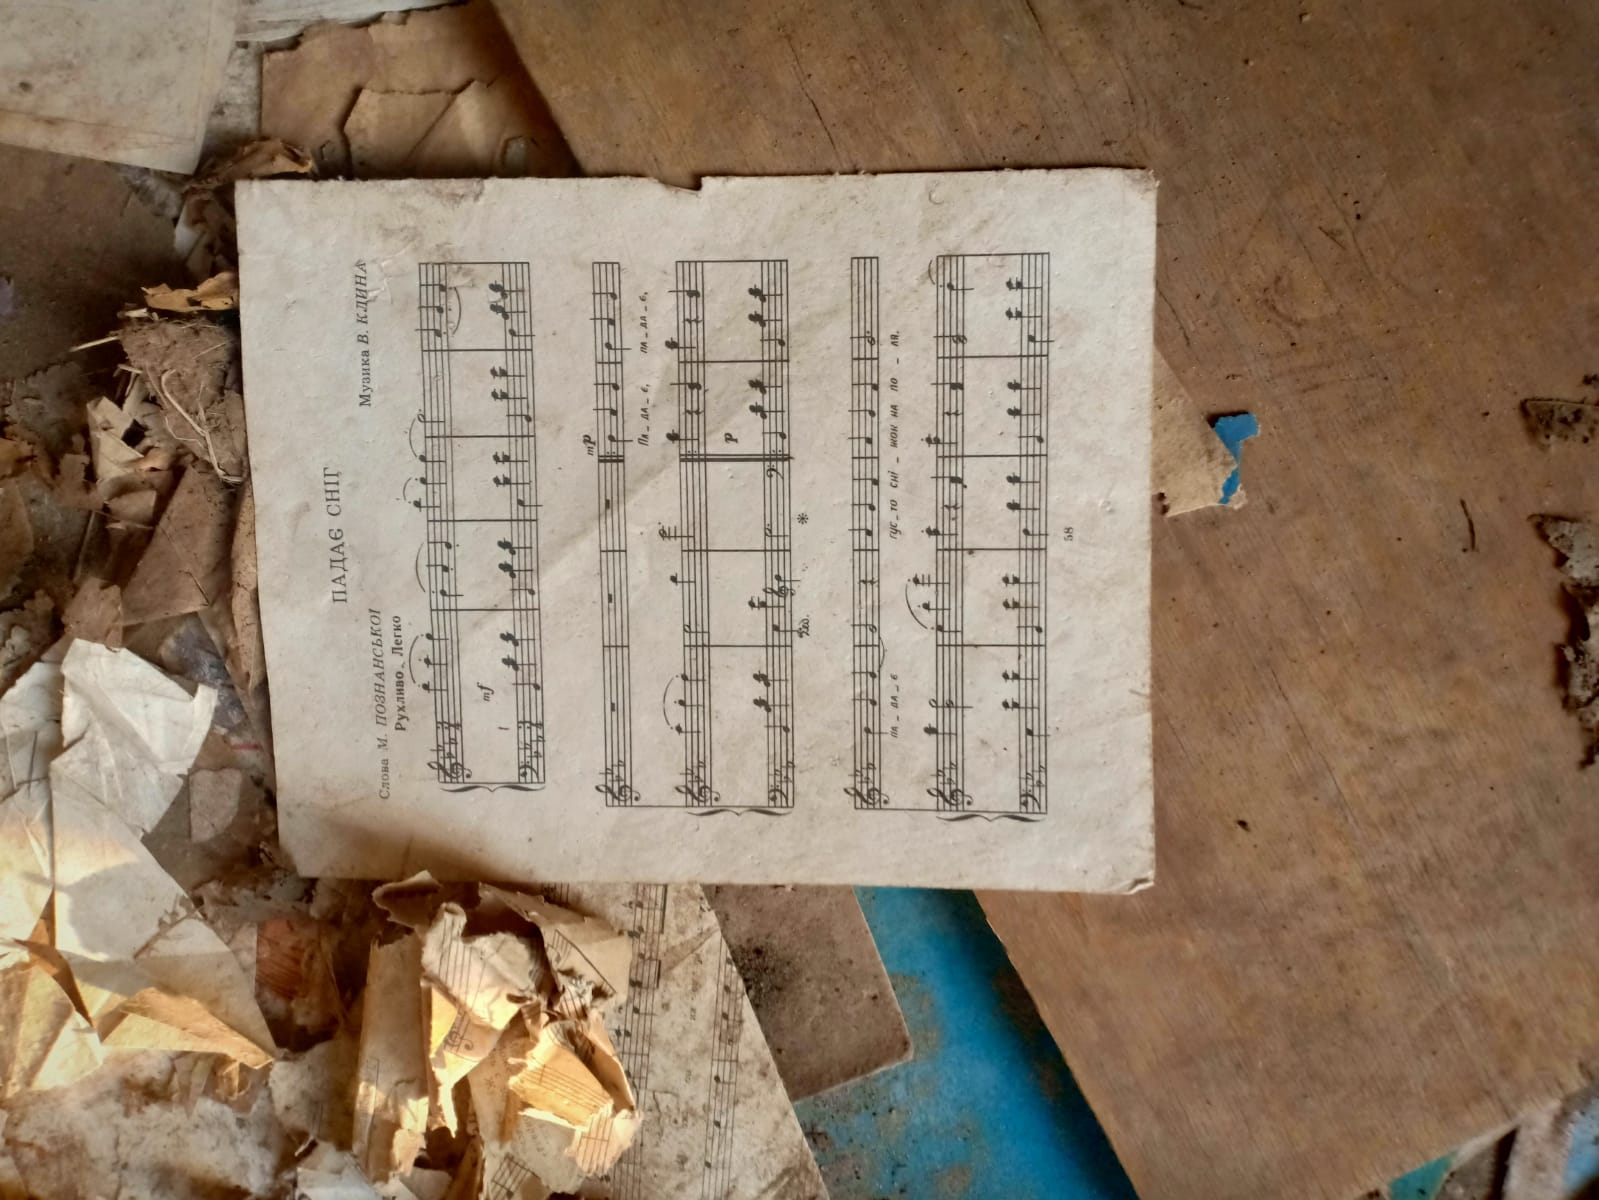 ПАДАЄ СНІГ
Слова М. ПОЗНАНСЬКОЇ
Музика В. КЛИНА
Рухливо. Легко
mf
mp
Па_да_є, па_да_є,
p
Ped. *
па_да_є гус_то сні_жок на по_ля.
58